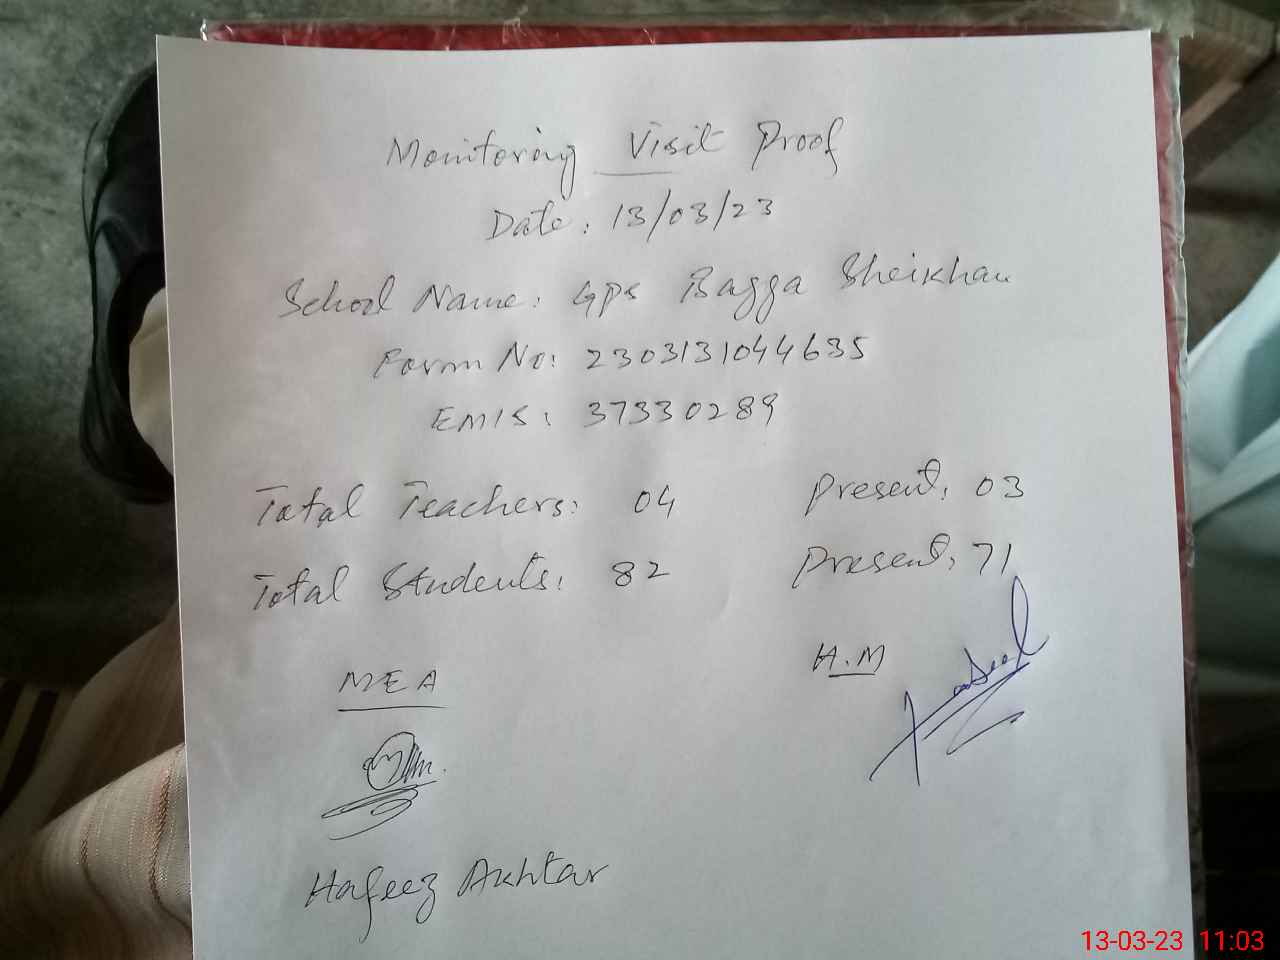 Monitoring Visit Proof
Date: 13/03/23
School Name: GPS Bagga Sheikhan
Form No: 2303131044635
EMIS: 37330289
Total Teachers: 04 Present: 03
Total Students: 82 Present: 71
MEA H.M
Hafeez Akhtar
13-03-23 11:03